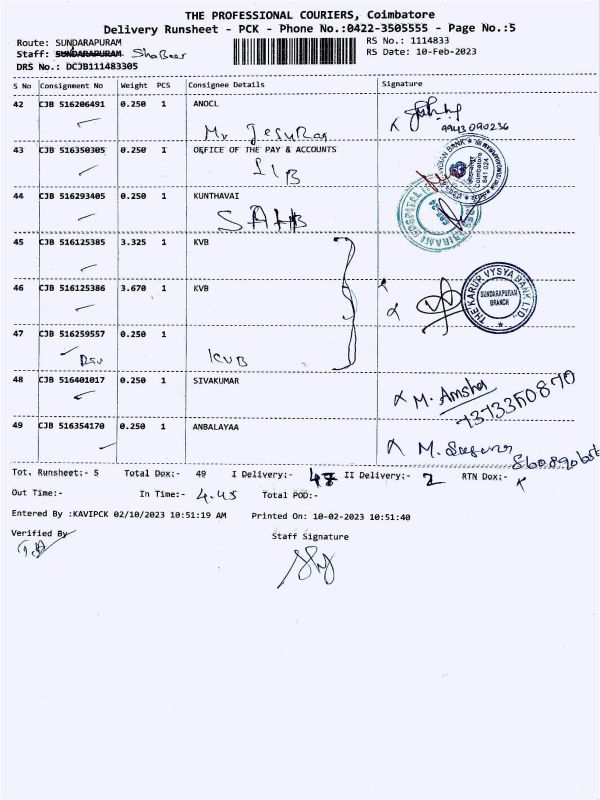 THE PROFESSIONAL COURIERS, Coimbatore
Delivery Runsheet - PCK - Phone No.:0422-3505555 - Page No.:5
Route: SUNDARAPURAM
Staff: SUNDARAPURAM Shabeer
DRS No.: DCJB111483305
RS No.: 1114833
RS Date: 10-Feb-2023
S No Consignment No Weight PCS Consignee Details Signature
42 CJB 516206491 0.250 1 ANOCL
Mr Jesuraj
9943090236
43 CJB 516350305 0.250 1 OFFICE OF THE PAY & ACCOUNTS
INDIAN BANK
Coimbatore
641 024
44 CJB 516293405 0.250 1 KUNTHAVAI
HOSPITAL
45 CJB 516125385 3.325 1 KVB
46 CJB 516125386 3.670 1 KVB
THE KARUR VYSYA BANK LTD.
SUNDARAPURAM
BRANCH
47 CJB 516259557 0.250 1
KVB
48 CJB 516401017 0.250 1 SIVAKUMAR
M. Amsha
7373350870
49 CJB 516354170 0.250 1 ANBALAYAA
M.
Tot. Runsheet:- 5 Total Dox:- 49 I Delivery:- 47 II Delivery:- 2 RTN Dox:-
Out Time:- In Time:- 4.45 Total POD:-
Entered By :KAVIPCK 02/10/2023 10:51:19 AM Printed On: 10-02-2023 10:51:40
Verified By
Staff Signature